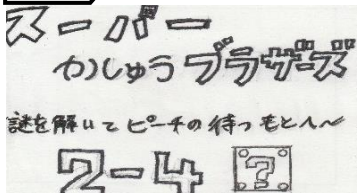 スーパー
かしゅうブラザーズ
謎を解いてピーチの待つもとへ~
2-4 ?